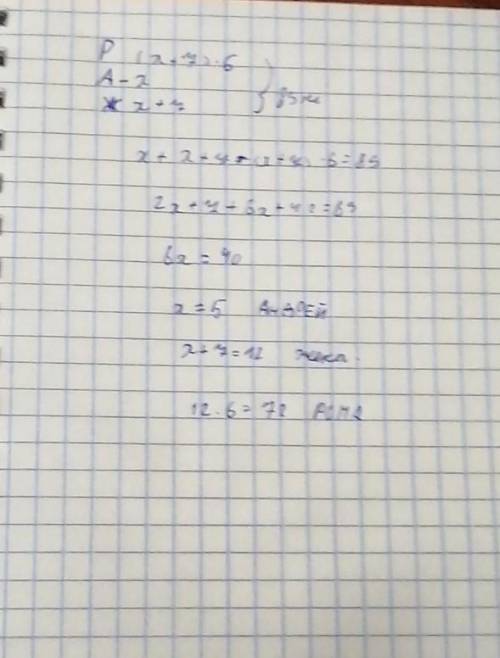 Р (x+7)·6
А - x
Ж x+7 } 89 км
x + x + 7 + (x+7)·6 = 89
2x + 7 + 6x + 42 = 89
8x = 40
x = 5 АНДРЕЙ
x + 7 = 12 Жека
12·6 = 72 РОМА